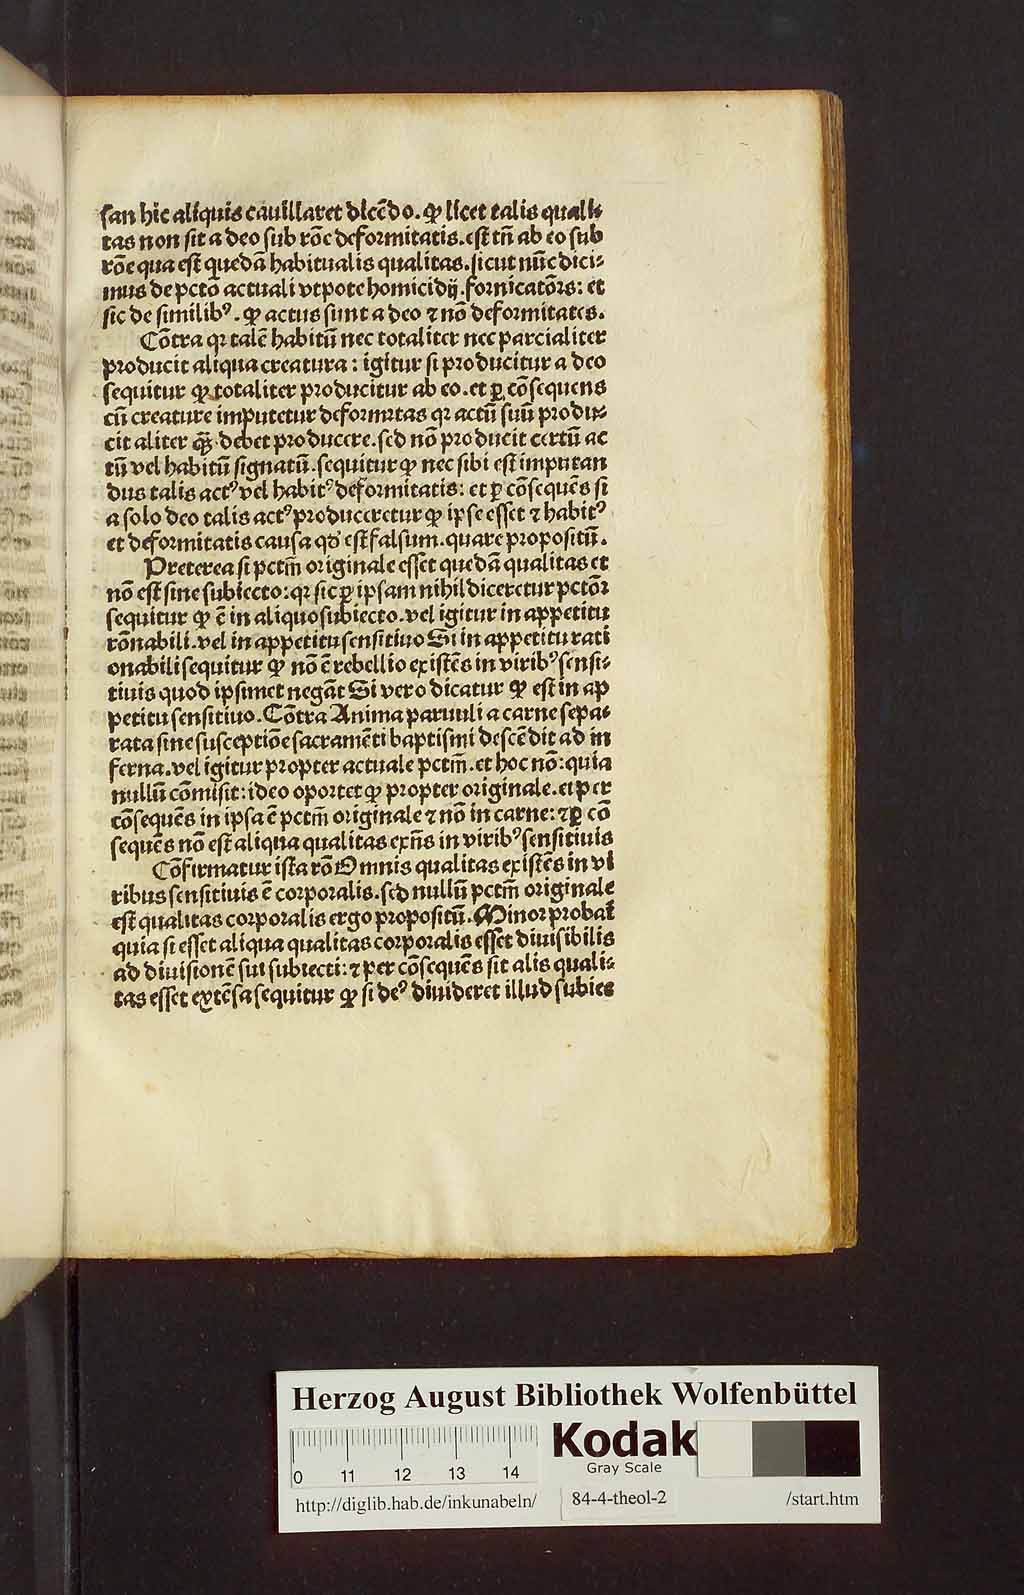 san hic aliquis cauillaret dicēdo. ꝙ licet talis quali⸗
tas non sit a deo sub rōe deformitatis. est tñ ab eo sub
rōe qua est quedā habitualis qualitas. sicut nūc dici⸗
mus de pctō actuali vtpote homicidij. fornicatōis: et
sic de similibꝰ. ꝙ actus sunt a deo ⁊ nō deformitates.
Cōtra qꝛ talē habitū nec totaliter nec parcialiter
producit aliqua creatura: igitur si producitur a deo
sequitur ꝙ totaliter producitur ab eo. et ꝑ cōsequens
cū creature imputetur deformitas qꝛ actū suū produ⸗
cit aliter qꝫ̄ debet producere. sed nō producit certū ac
tū vel habitū signatū. sequitur ꝙ nec sibi est imputan
dus talis actꝰ vel habitꝰ deformitatis: et ꝑ cōsequēs si
a solo deo talis actꝰ produceretur ꝙ ipse esset ⁊ habitꝰ
et deformitatis causa qđ est falsum. quare propositū.
Preterea si pctm̄ originale esset quedā qualitas et
nō est sine subiecto: qꝛ sic ꝑ ipsam nihil diceretur pctōꝛ
sequitur ꝙ ē in aliquo subiecto. vel igitur in appetitu
rōnabili. vel in appetitu sensitiuo Si in appetitu rati
onabili sequitur ꝙ nō ē rebellio existēs in viribꝰ sensi⸗
tiuis quod ipsimet negāt Si vero dicatur ꝙ est in ap
petitu sensitiuo. Cōtra Anima paruuli a carne sepa⸗
rata sine susceptiōe sacramēti baptismi descēdit ad in
ferna. vel igitur propter actuale pctm̄. et hoc nō: quia
nullū cōmisit: ideo oportet ꝙ propter originale. et per
cōsequēs in ipsa ē pctm̄ originale ⁊ nō in carne: ⁊ ꝑ cō
sequēs nō est aliqua qualitas exñs in viribꝰ sensitiuis
Cōfirmatur ista rō Omnis qualitas existēs in vi
ribus sensitiuis ē corporalis. sed nullū pctm̄ originale
est qualitas corporalis ergo propositū. Minor probat̄
quia si esset aliqua qualitas corporalis esset diuisibilis
ad diuisionē sui subiecti: ⁊ per cōsequēs sit alis quali⸗
tas esset extēsa sequitur ꝙ si deꝰ diuideret illud subiec
Herzog August Bibliothek Wolfenbüttel
0 11 12 13 14
Kodak
Gray Scale
http://diglib.hab.de/inkunabeln/ 84-4-theol-2 /start.htm